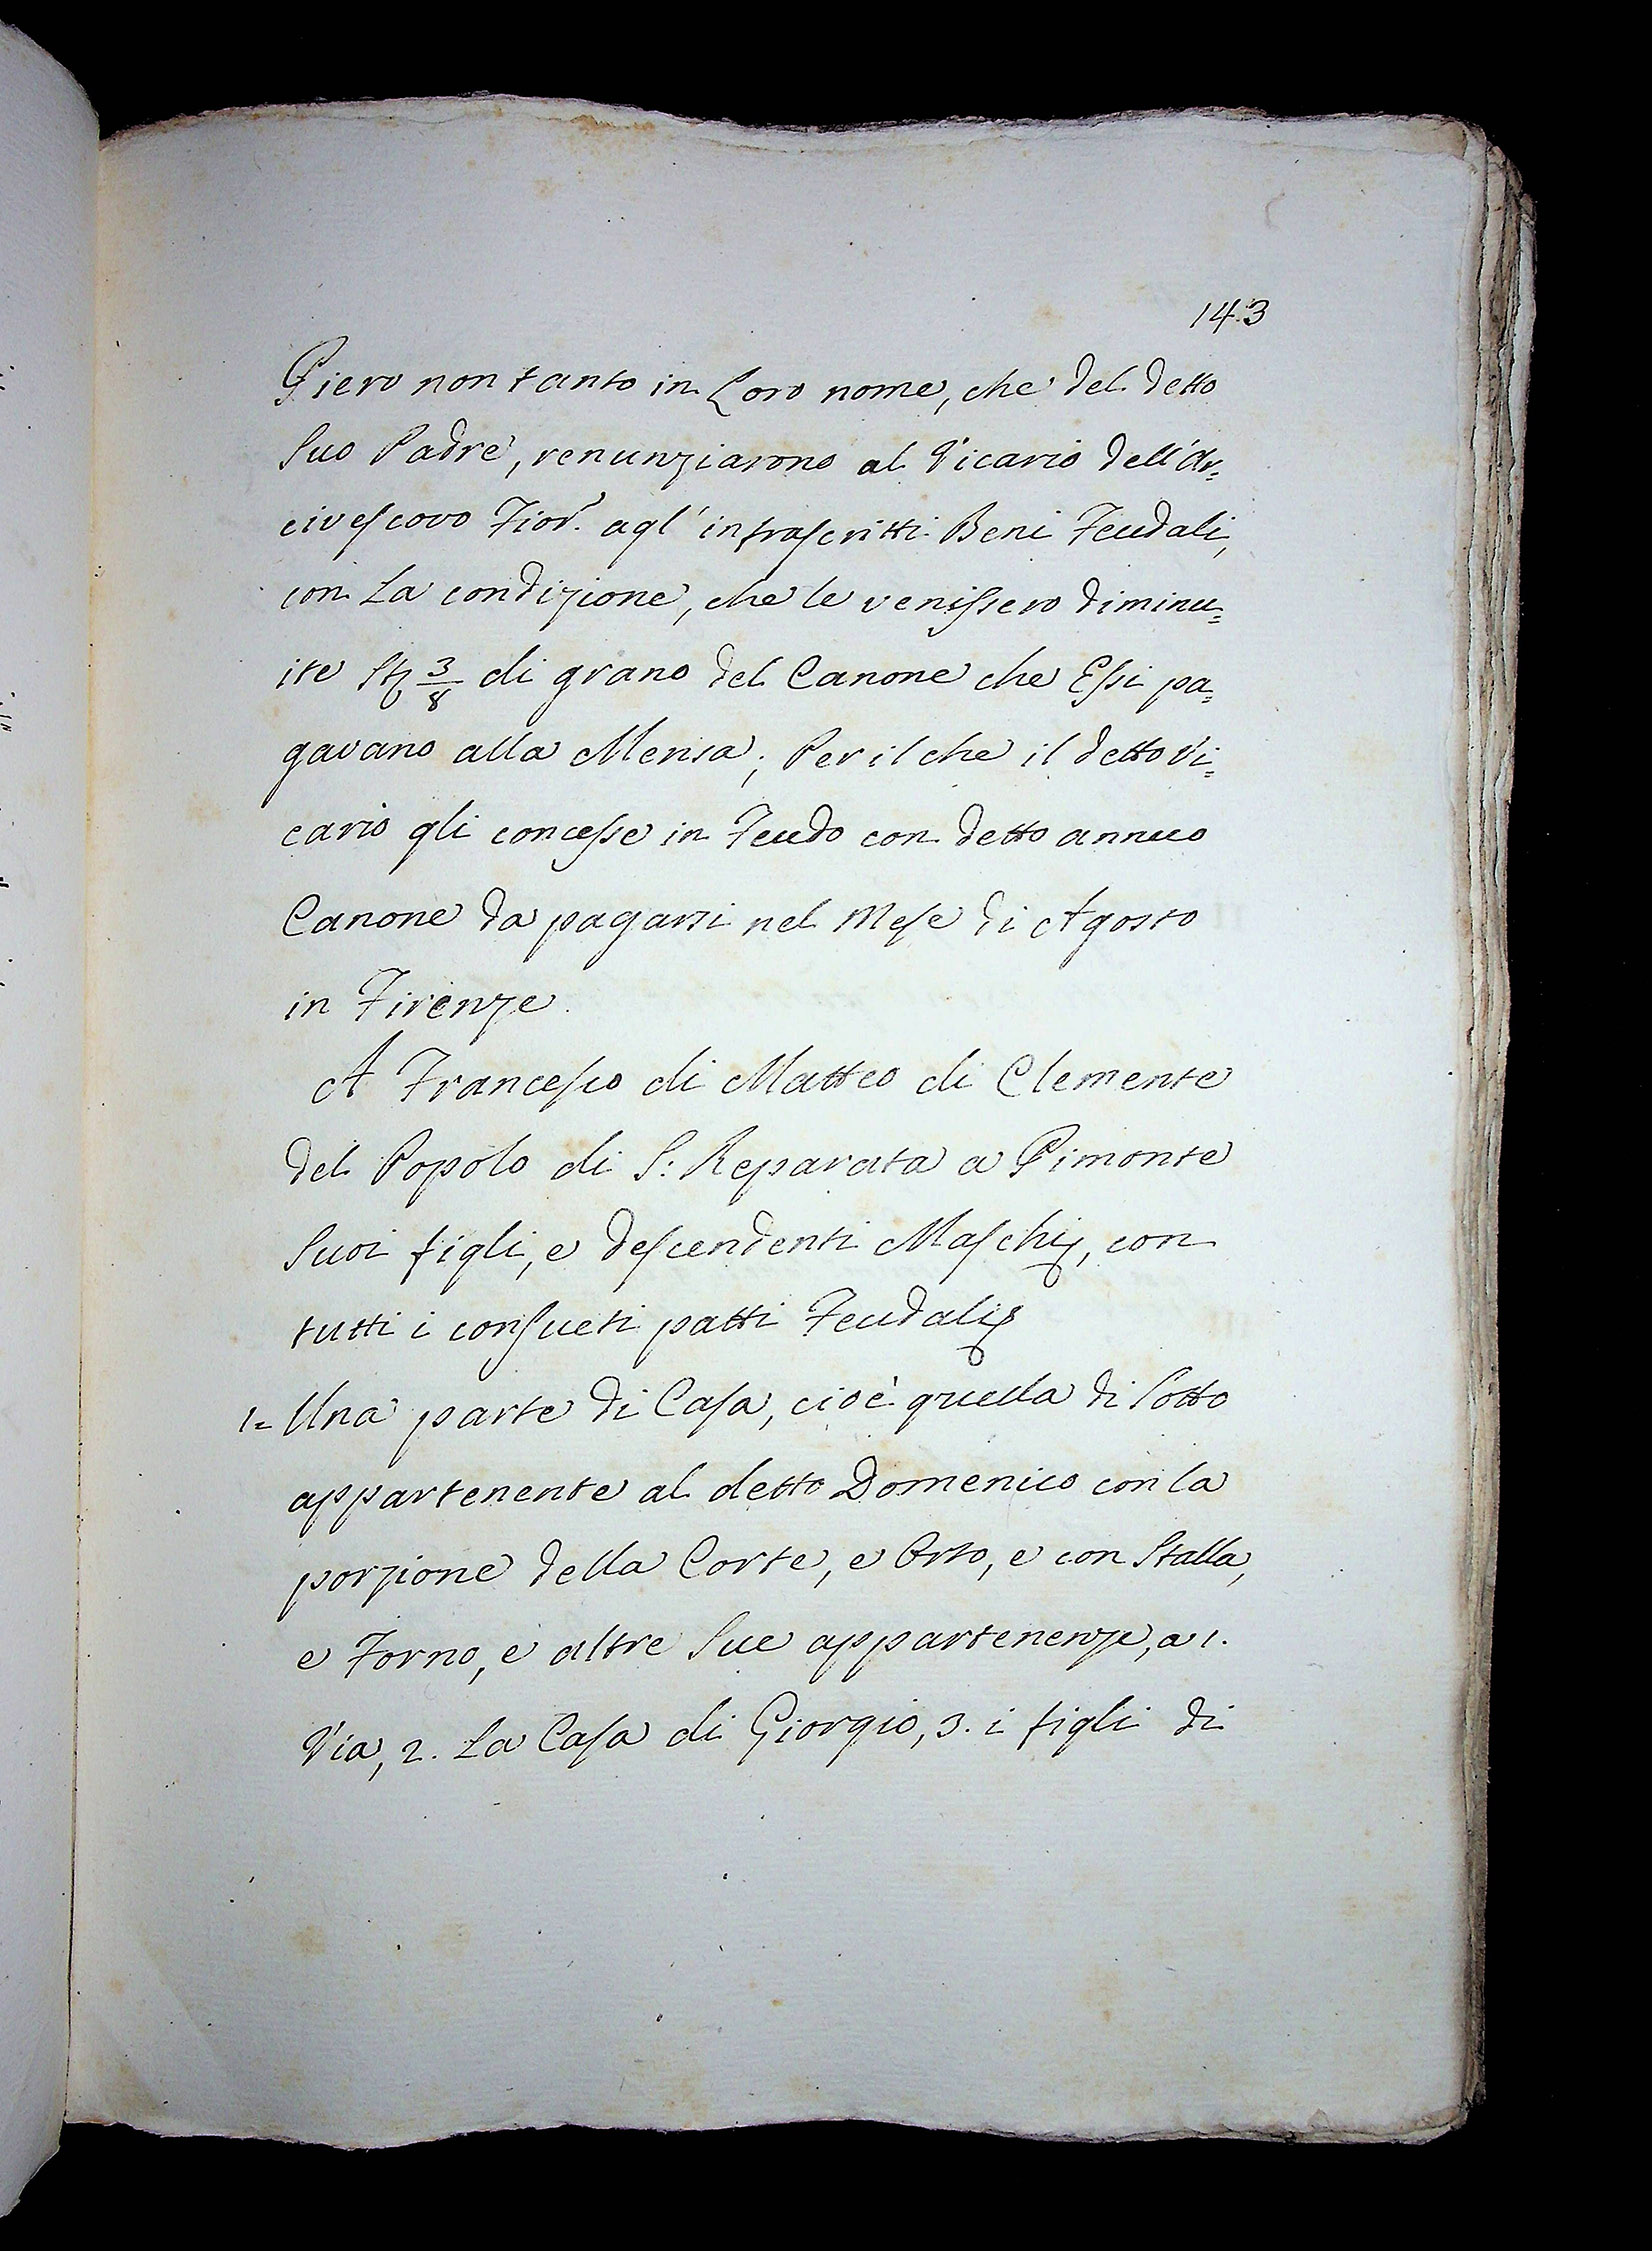 143
Piero non tanto in Loro nome, che del detto
Suo Padre, renunziarono al Vicario dell'Ar=
civescovo Fior. agl'infrascritti Beni Feudali,
con La condizione, che le venissero diminu=
ite St. 3/8 di grano del Canone che Essi pa=
gavano alla Mensa; Per il che il detto Vi=
cario gli concesse in Feudo con detto annuo
Canone da pagarsi nel Mese di Agosto
in Firenze.
A Francesco di Matteo di Clemente
del Popolo di S: Reparata a Pimonte
Suoi figli, e descendenti Maschj, con
tutti i consueti patti Feudali
1= Una parte di Casa, cioè quella di Sotto
appartenente al detto Domenico con la
porzione della Corte, e Orto, e con Stalla,
e Forno, e altre Sue appartenenze, a 1.
Via, 2. La Casa di Giorgio, 3. i figli di